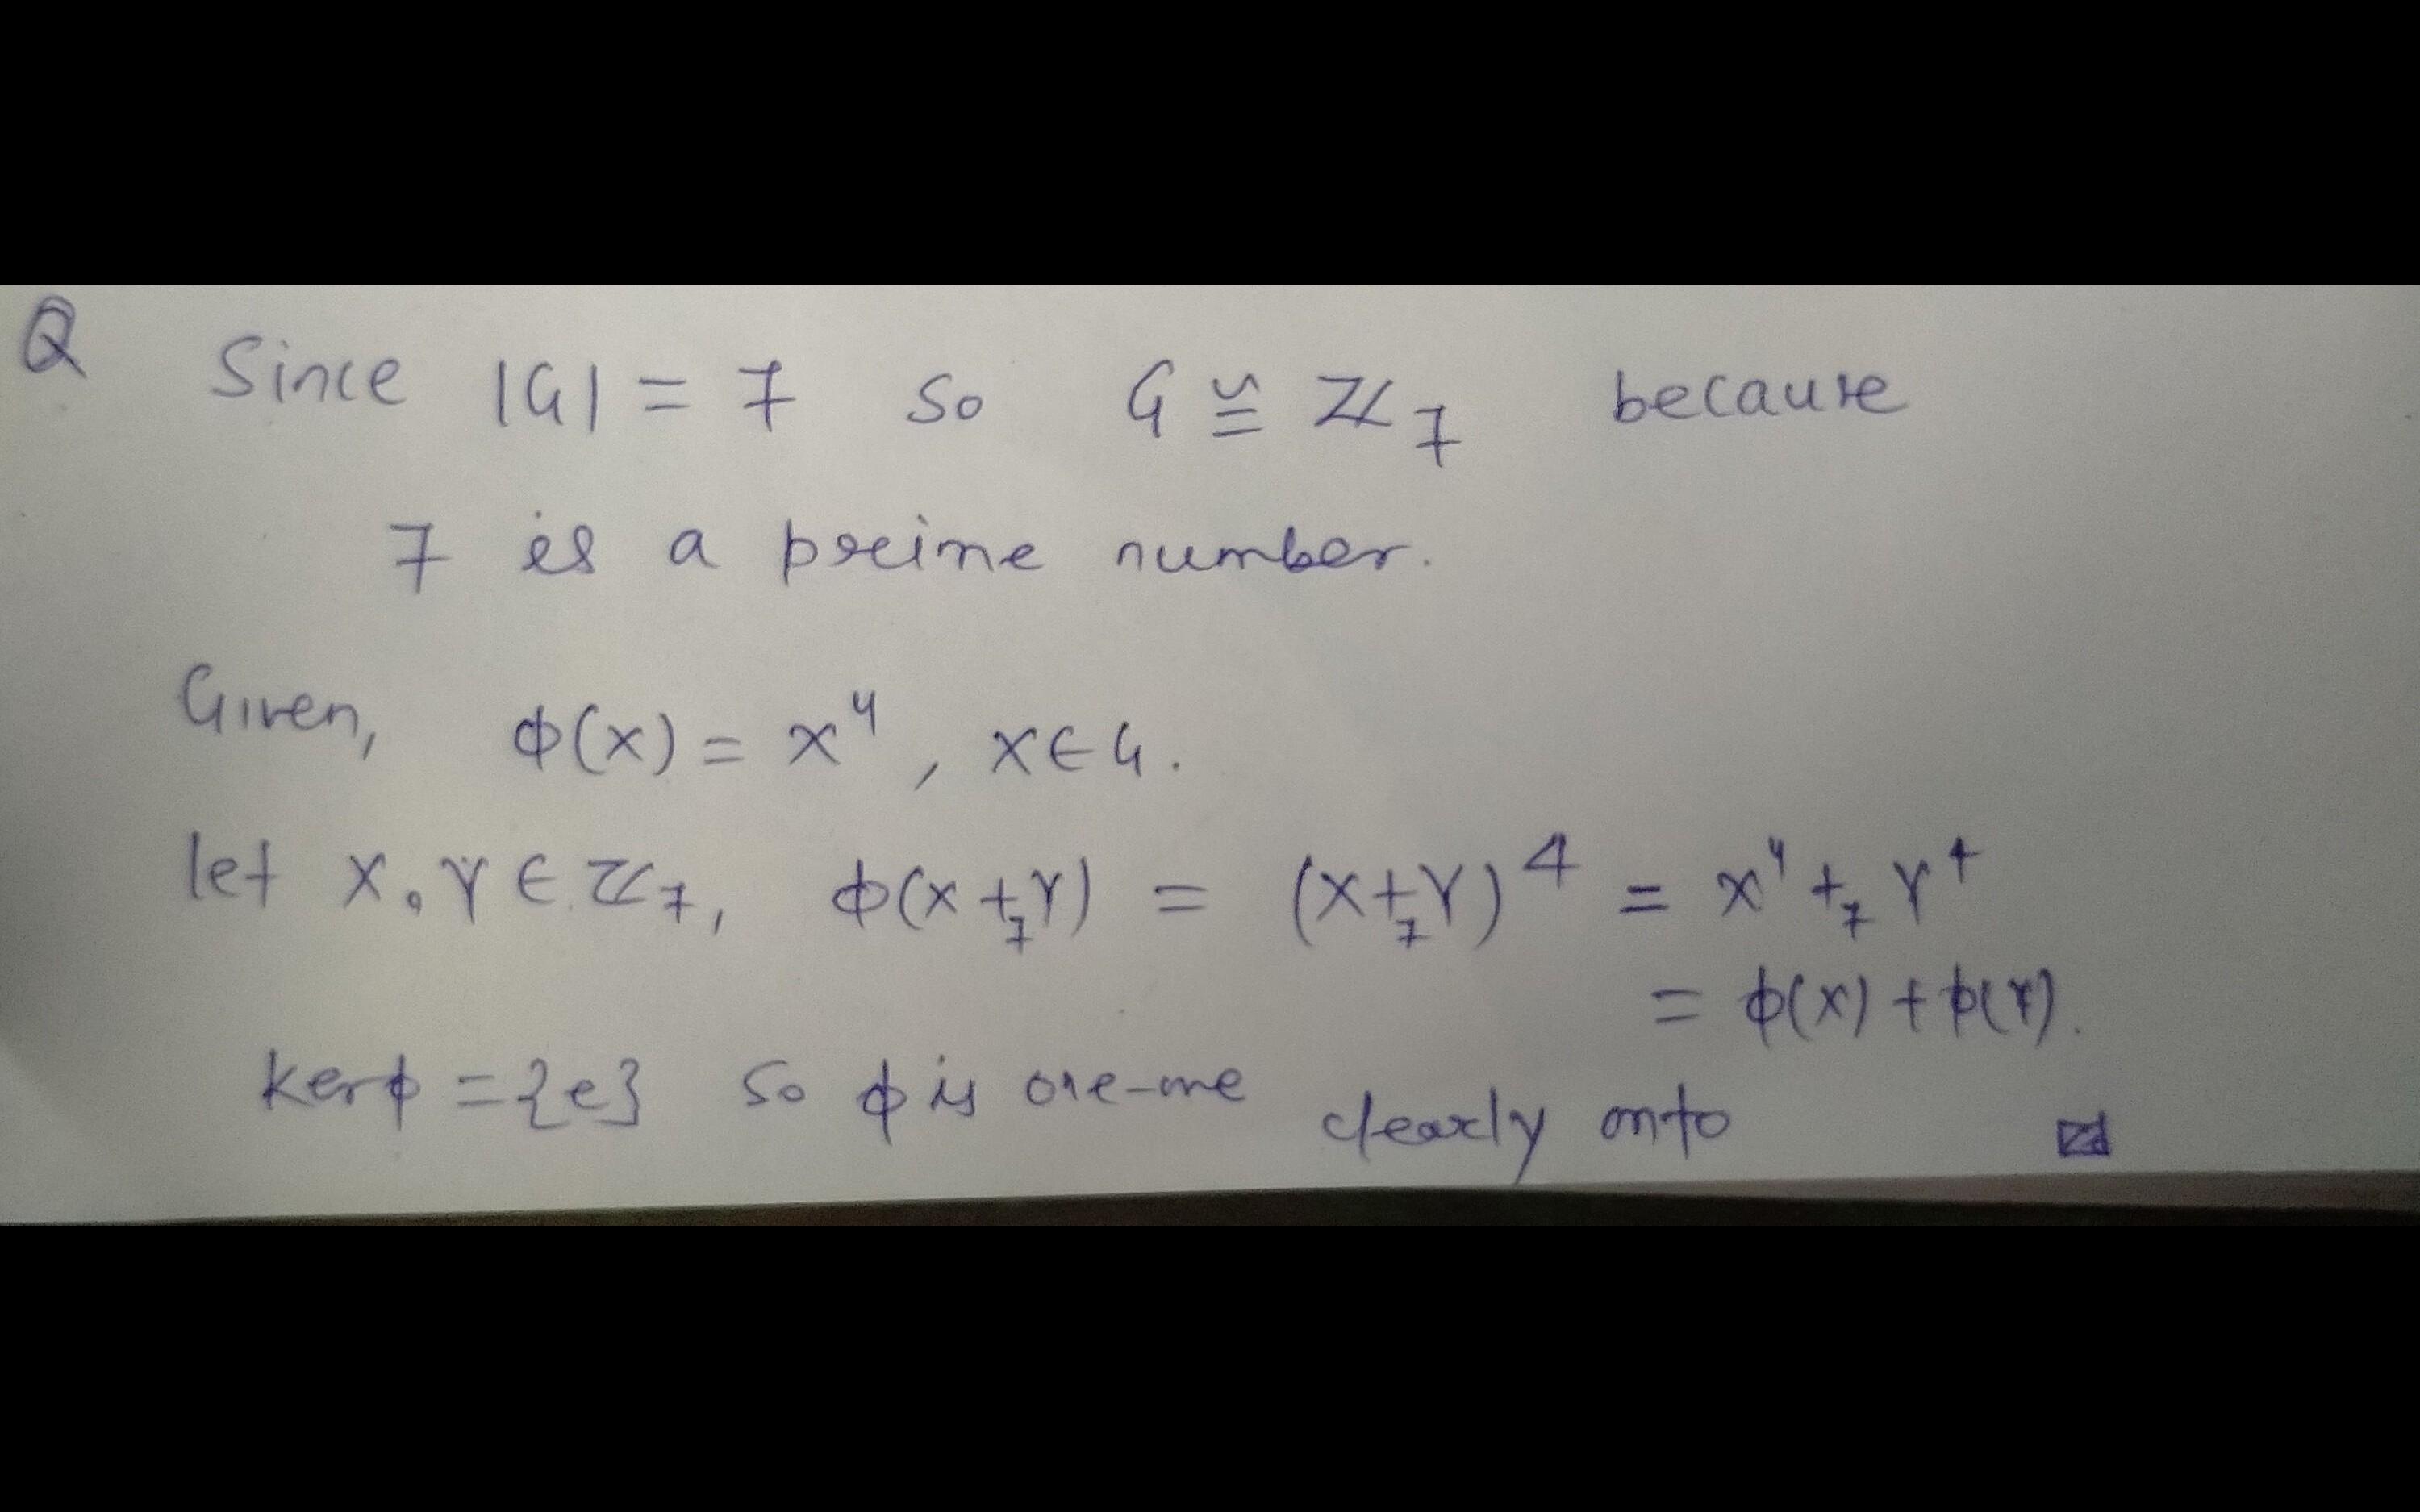 Q Since |G| = 7 so G ≅ ℤ₇ because
7 is a prime number.
Given, ϕ(x) = x⁴, x∈G.
let x, y ∈ ℤ₇, ϕ(x +₇ y) = (x +₇ y)⁴ = x⁴ +₇ y⁴
= ϕ(x) + ϕ(y).
kerϕ = {e} so ϕ is one-one clearly onto